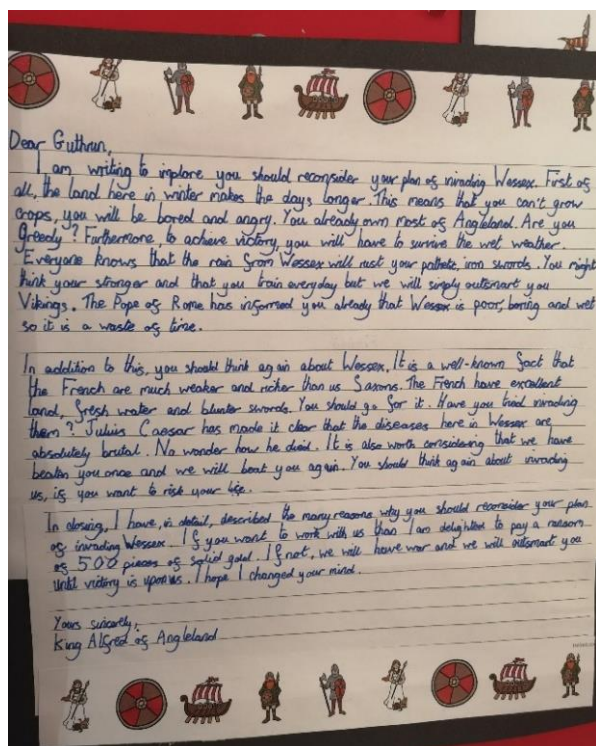 Dear Guthrun,
I am writing to implore you should reconsider your plan of invading Wessex. First of
all, the land here in winter makes the days longer. This means that you can't grow
crops, you will be bored and angry. You already own most of Angleland. Are you
Greedy? Furthermore, to achieve victory, you will have to survive the wet weather.
Everyone knows that the rain from Wessex will rust your pathetic, iron swords. You might
think your stronger and that you train everyday but we will simply outsmart you
Vikings. The Pope of Rome has informed you already that Wessex is poor, boring and wet
so it is a waste of time.
In addition to this, you should think again about Wessex. It is a well-known fact that
the French are much weaker and richer than us Saxons. The French have excellent
land, fresh water and blunter swords. You should go for it. Have you tried invading
them? Julius Caesar has made it clear that the diseases here in Wessex are
absolutely brutal. No wonder how he died. It is also worth considering that we have
beaten you once and we will beat you again. You should think again about invading
us, if you want to risk your life.
In closing, I have, in detail, described the many reasons why you should reconsider your plan
of invading Wessex. If you want to work with us than I am delighted to pay a ransom
of 500 pieces of solid gold. If not, we will have war and we will outsmart you
until victory is upon us. I hope I changed your mind.
Yours sincerely,
King Alfred of Angleland